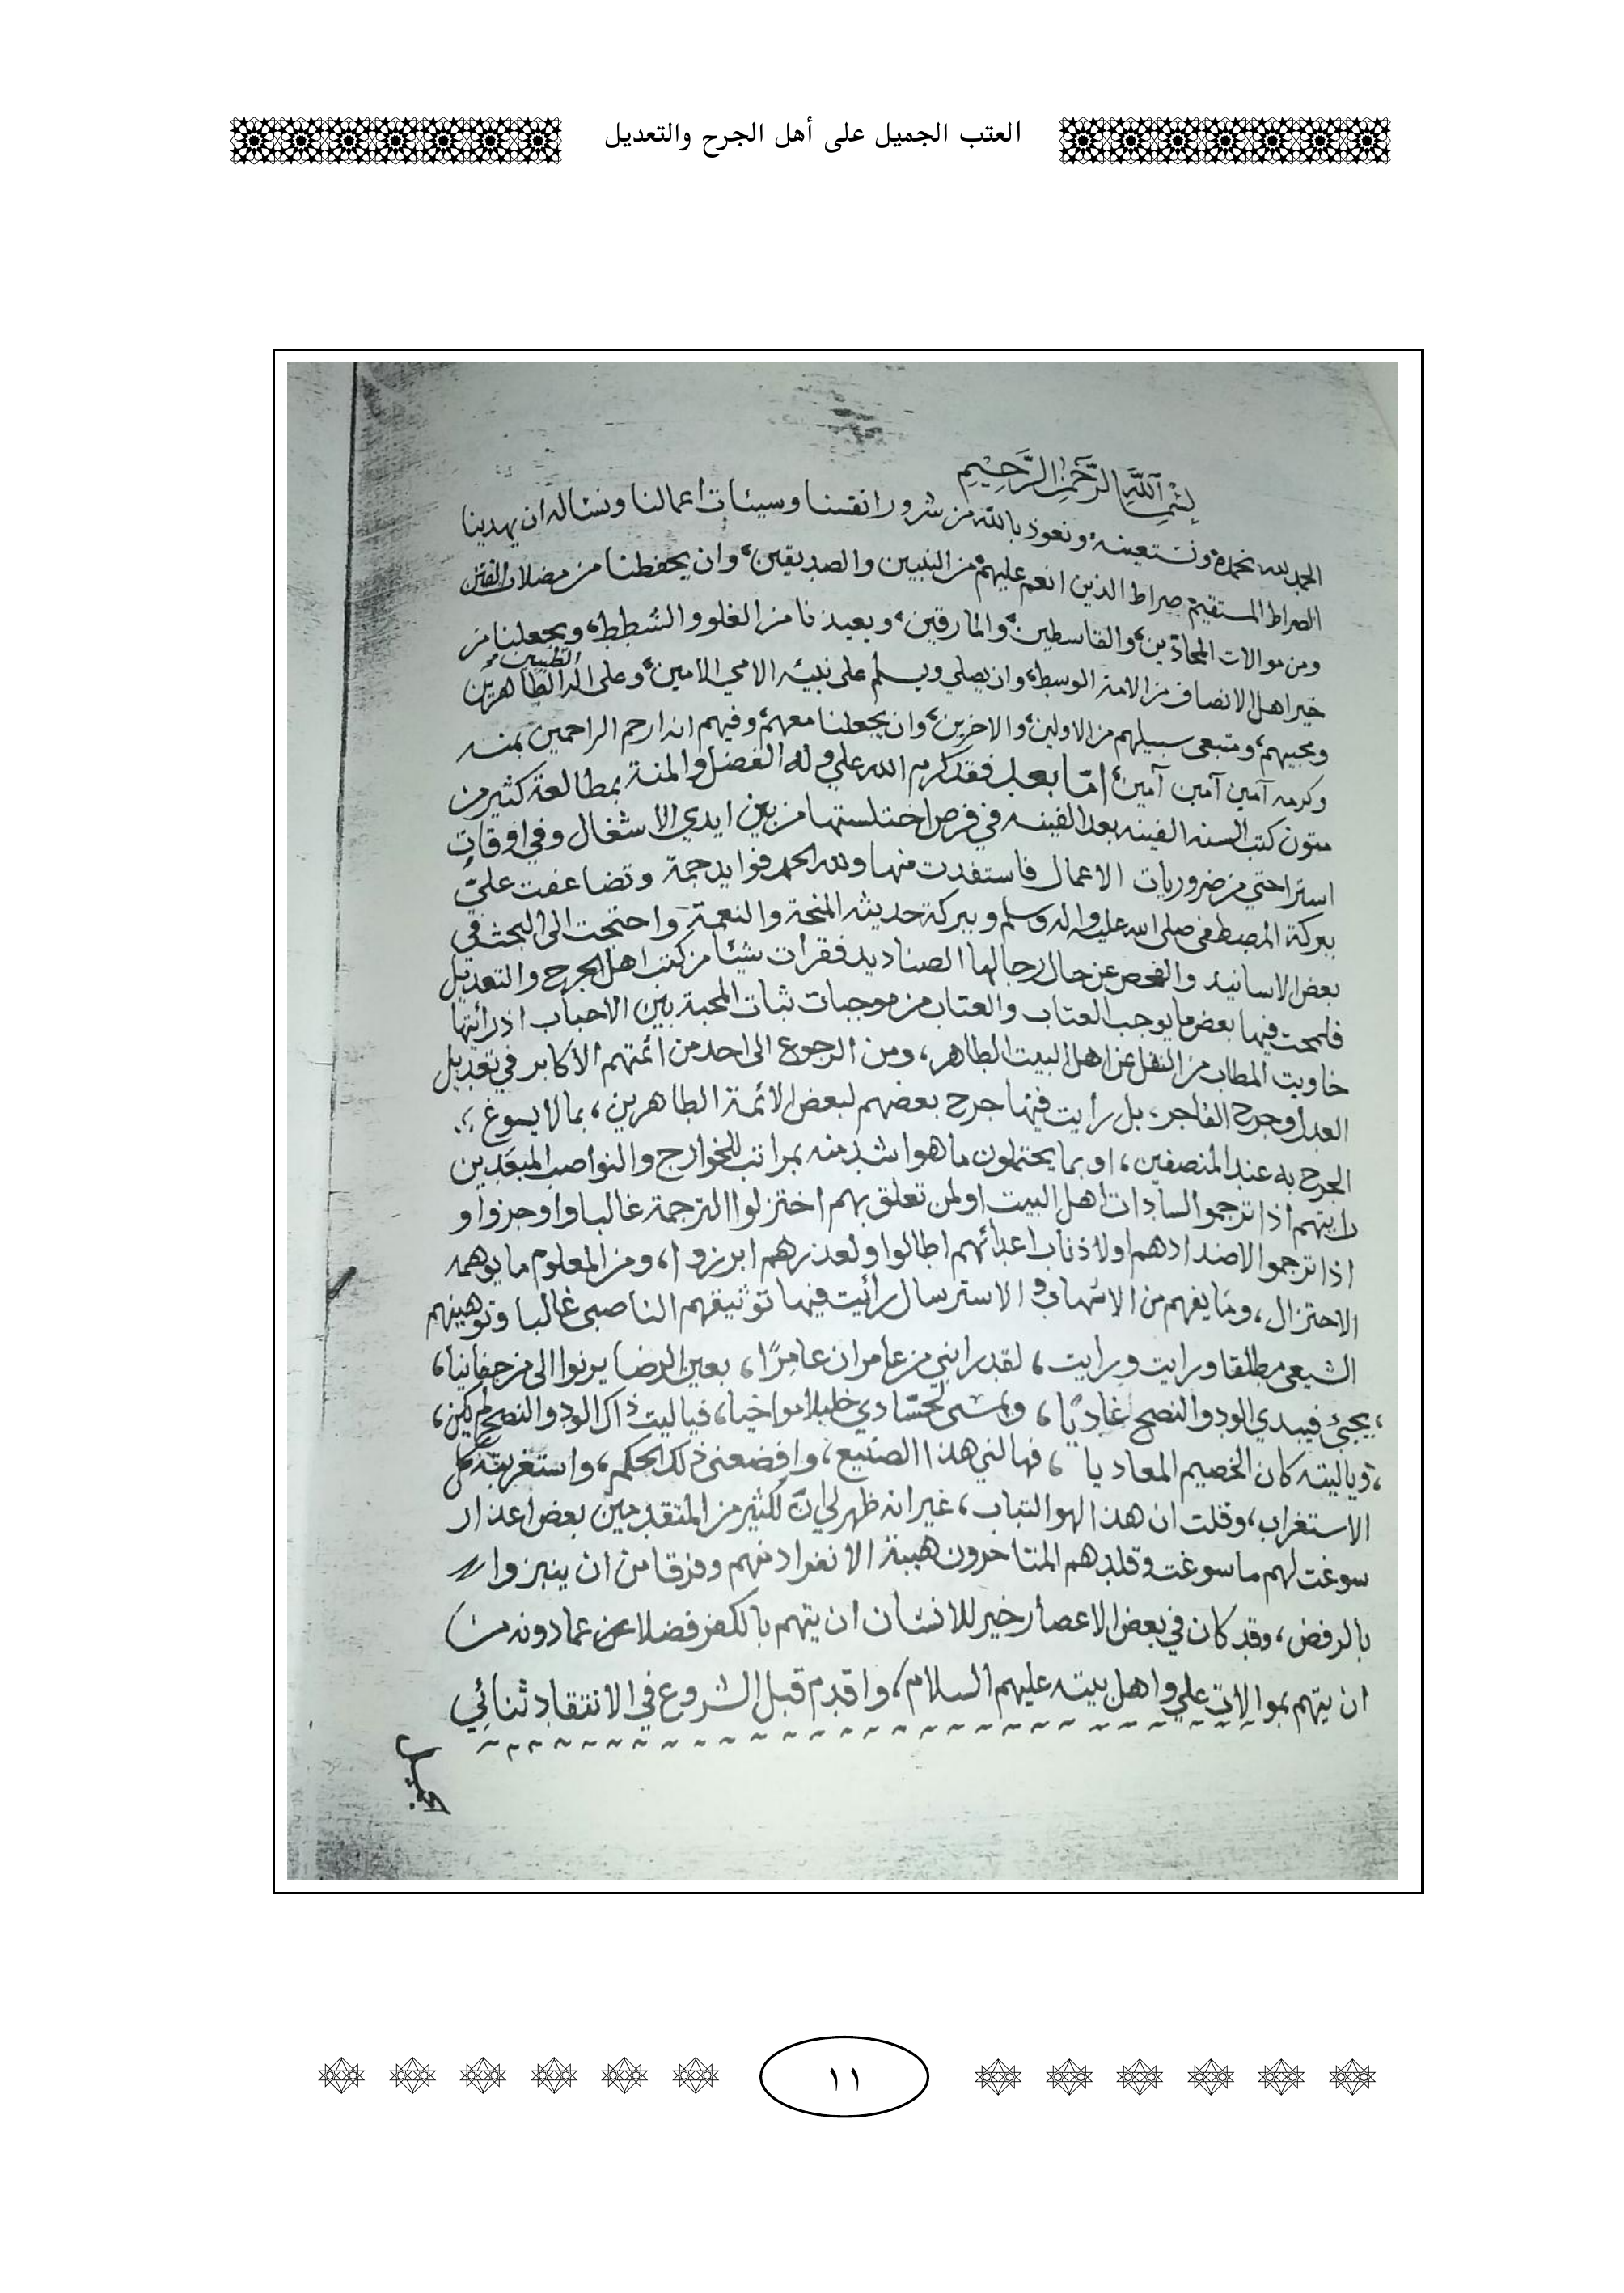 العتب الجميل على أهل الجرح والتعديل
بِسْمِ اللَّهِ الرَّحْمَنِ الرَّحِيمِ
الحمد لله نحمده ونستعينه ونعوذ بالله من شرور انفسنا وسيئات اعمالنا ونساله ان يهدينا
الصراط المستقيم صراط الذين انعم عليهم من النبيين والصديقين، وان يحفظنا من مضلات الفتن
ومن موالات المحادّين، والقاسطين، والمارقين، ويعيذنا من الغلو والشطط، ويجعلنا من
خير اهل الانصاف من الامة الوسط، وان يصلي ويسلم على نبيّه الامي الامين، وعلى اله الطيبين الطاهرين
ومحبيهم، ومتبعي سبيلهم من الاولين، والاخرين، وان يجعلنا معهم، وفيهم انه ارحم الراحمين بمنه
وكرمه آمين آمين آمين، امّا بعد فقد كرم الله علي وله الفضل والمنة بمطالعة كثير من
متون كتب السنه الفينه بعد الفينه في فرص اختلستها من بين ايدي الاشغال وفي اوقات
استراحتي من ضروريات الاعمال فاستفدت منها ولله الحمد فوايد جمة وتضاعفت عليّ
ببركة المصطفى صلى الله عليه واله وسلم وببركة حديثه المنحة والنعمة، واحتجت الى البحث في
بعض الاسانيد والفحص عن حال رجالها الصناديد فقرات شيئا من كتب اهل الجرح والتعديل
فلمحت فيها بعض ما يوجب العتاب والعتاب من موجبات ثبات المحبة بين الاحباب اذ رائيتها
خاويت الوطاب من النقل عن اهل البيت الطاهر، ومن الرجوع الى احد من ائمتهم الاكابر في تعديل
العدل وجرح الفاجر، بل رايت فيها جرح بعضهم لبعض الائمة الطاهرين، بما لا يسوغ
الجرح به عند المنصفين، او بما يحتملون ما هو اشد منه بمراتب للخوارج والنواصب المبعدين
رايتهم اذا ترجموا السادات اهل البيت او لمن تعلق بهم اختزلوا الترجمة غالبا واوجزوا و
اذا ترجموا لاضدادهم او لاذناب اعدائهم اطالوا ولعذرهم ابرزوا، ومن المعلوم ما يوهمه
الاختزال، وما يفهم من الاسهاب والاسترسال رائيت فيها توثيقهم الناصبي غالبا وتوهينهم
الشيعي مطلقا ورايت ورايت، لقد رابني من عامر ان عامرًا، بعين الرضا يرنوا الى من جفانيا،
، يجيئ فيبدي الود والنصح غاديًا، ويمسي لحسّادي خليلا مواخيا، فيا ليت ذاك الود والنصح لم يكن،
، ويا ليته كان الخصيم المعاديا، فهالني هذا الصنيع، وافضعني ذلك الحكم، واستغربته كل
الاستغراب، وقلت ان هذا لهو التباب، غير انه ظهر لي انّ لكثير من المتقدمين بعض اعذار
سوغت لهم ما سوغت وقلدهم المتاخرون هيبة الانفراد عنهم وفرقا من ان ينبزوا
بالرفض، وقد كان في بعض الاعصار خير للانسان ان يتهم بالكفر فضلا عن عما دونه من
ان يتهم بموالات علي واهل بيته عليهم السلام، واقدم قبل الشروع في الانتقاد ثنائي
١١